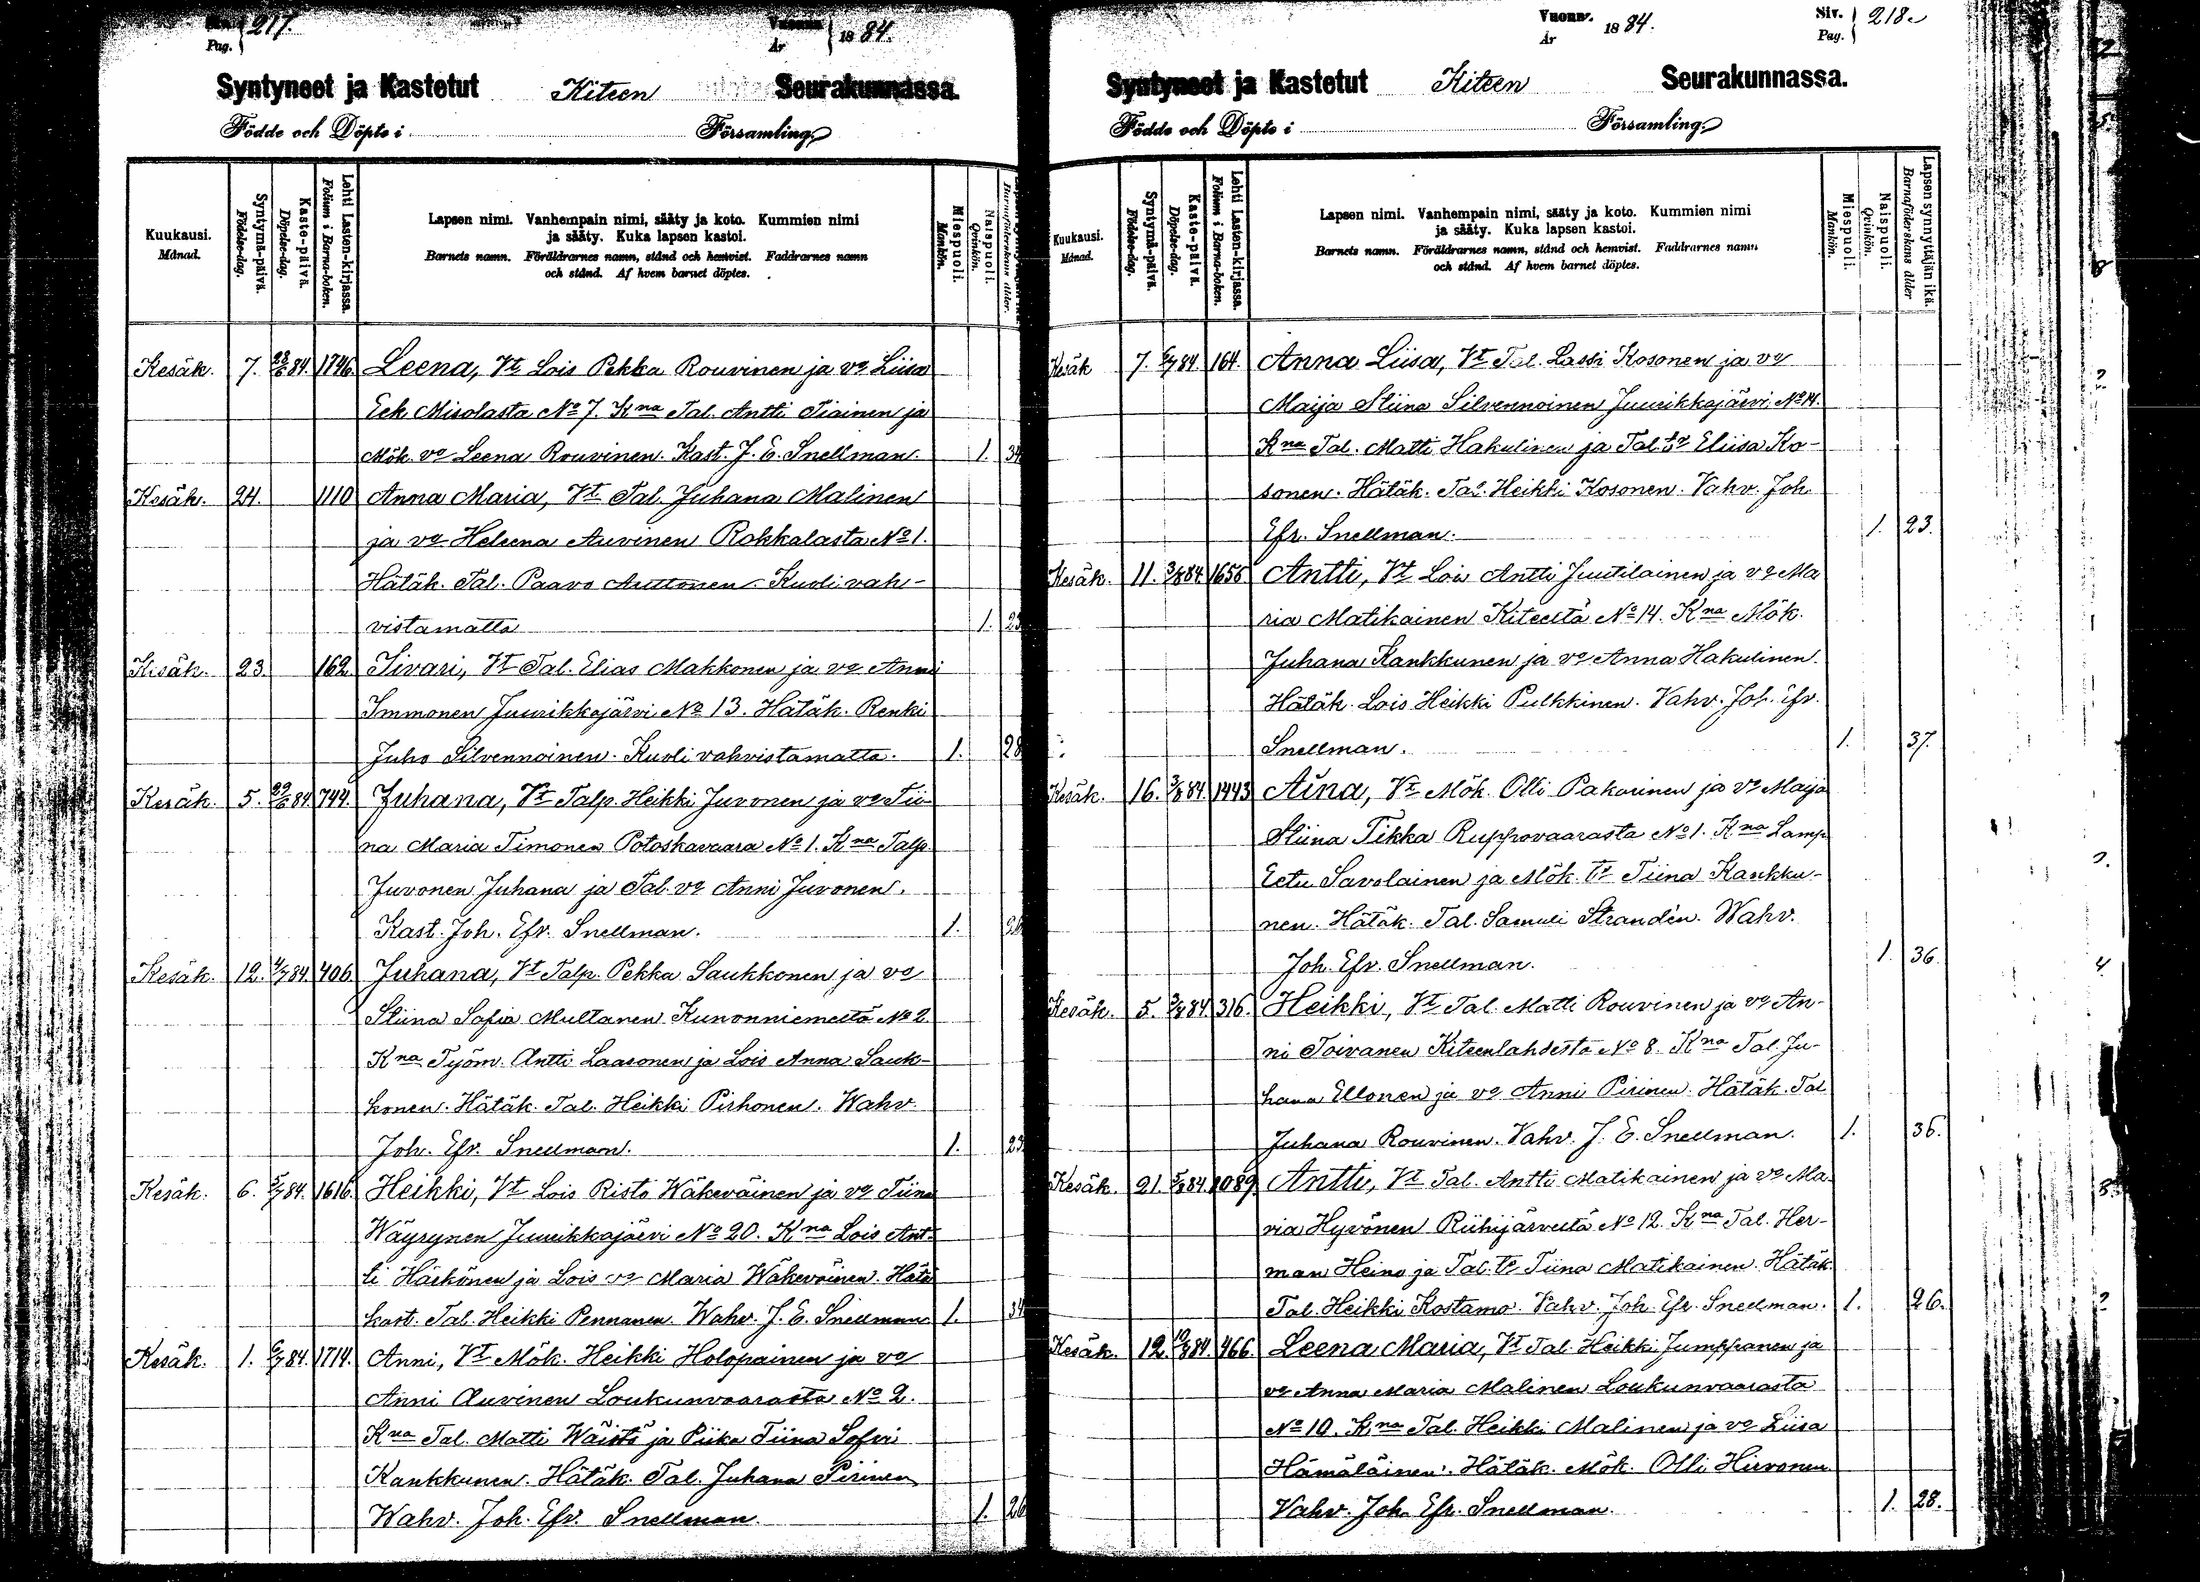 Pag. 217.
Vuonna
År 1884.
Syntyneet ja Kastetut Kiteen Seurakunnassa.
Födde och Döpte i Församling.
Kuukausi.
Månad.
Syntymä-päivä.
Födelse-dag.
Kaste-päivä.
Döpelse-dag.
Lehti Lasten-kirjassa.
Folium i Barna-boken.
Lapsen nimi. Vanhempain nimi, sääty ja koto. Kummien nimi
ja sääty. Kuka lapsen kastoi.
Barnets namn. Föräldrarnes namn, stånd och hemvist. Faddrarnes namn
och stånd. Af hvem barnet döptes.
Miespuoli.
Mankön.
Naispuoli.
Qvinkön.
Barnaföderskans ålder.
Kesäk. 7. 22/6 84. 1746. Leena, Vt Lois Pekka Rouvinen ja vo Liisa
Eek Misolasta No 7. Kna Tal. Antti Tiainen ja
Mök. vo Leena Rouvinen. Kast. J. E. Snellman. 1. 34
Kesäk. 24. 1110 Anna Maria, Vt Tal. Juhana Malinen
ja vo Heleena Auvinen Rokkalasta No 1.
Hätäk. Tal. Paavo Anttonen. Kuoli vah-
vistamatta 1. 23
Kesäk. 23. 162. Iivari, Vt Tal. Elias Mahkonen ja vo Anni
Immonen Juurikkajärvi No 13. Hätäk. Renki
Juho Silvennoinen. Kuoli vahvistamatta. 1. 28
Kesäk. 5. 29/6 84. 744. Juhana, Vt Talp. Heikki Juvonen ja vo Tii-
na Maria Timonen Potoskavaara No 1. Kna Talp.
Juvonen Juhana ja Tal. vo Anni Juvonen.
Kast. Joh. Efr. Snellman. 1.
Kesäk. 12. 4/7 84. 406. Juhana, Vt Talp. Pekka Saukkonen ja vo
Stiina Sofia Multanen Kunonniemeltä No 2.
Kna Työm. Antti Laasonen ja Lois Anna Sauk-
konen. Hätäk. Tal. Heikki Pirhonen. Wahv.
Joh. Efr. Snellman. 1. 23
Kesäk. 6. 5/7 84. 1616. Heikki, Vt Lois Risto Wäkeväinen ja vo Tiina
Wäyrynen Juurikkajärvi No 20. Kna Lois Ant-
ti Härkönen ja Lois vo Maria Wäkeväinen. Hätä
kast. Tal. Heikki Pennanen. Wahv. J. E. Snellman. 1. 34
Kesäk. 1. 6/7 84. 1714. Anni, Vt Mök. Heikki Holopainen ja vo
Anni Auvinen Loukunvaarasta No 2.
Kna Tal. Matti Wäistö ja Piika Tiina Sofvi
Kankkunen. Hätäk. Tal. Juhana Pirinen
Wahv. Joh. Efr. Snellman. 1. 26
Vuonna
År 1884.
Siv.
Pag. 218.
Syntyneet ja Kastetut Kiteen Seurakunnassa.
Födde och Döpte i Församling.
Kuukausi.
Månad.
Syntymä-päivä.
Födelse-dag.
Kaste-päivä.
Döpelse-dag.
Lehti Lasten-kirjassa.
Folium i Barna-boken.
Lapsen nimi. Vanhempain nimi, sääty ja koto. Kummien nimi
ja sääty. Kuka lapsen kastoi.
Barnets namn. Föräldrarnes namn, stånd och hemvist. Faddrarnes namn
och stånd. Af hvem barnet döptes.
Miespuoli.
Mankön.
Naispuoli.
Qvinkön.
Lapsen synnyttäjän ikä.
Barnaföderskans ålder
Kesäk 7. 6/7 84. 164. Anna Liisa, Vt Tal. Lassi Kosonen ja vo
Maija Stiina Silvennoinen Juurikkajärvi No 14.
Kna Tal. Matti Hakulinen ja Tal. tr Eliisa Ko-
sonen. Hätäk. Tal. Heikki Kosonen. Vahv. Joh.
Efr. Snellman. 1. 23.
Kesäk. 11. 3/8 84. 1658 Antti, Vt Lois Antti Juutilainen ja vo Ma
ria Matikainen Kiteeltä No 14. Kna Mök.
Juhana Kankkunen ja vo Anna Hakulinen.
Hätäk. Lois Heikki Pulkkinen. Vahv. Joh. Efr.
Snellman. 1. 37.
Kesäk. 16. 3/8 84. 1443 Aina, Vt Mök. Olli Pakarinen ja vo Maija
Stiina Tikka Ruppovaarasta No 1. Kna Lamp.
Eetu Savolainen ja Mök. tr Tiina Kankku-
nen. Hätäk. Tal. Samuli Strandén. Wahv.
Joh. Efr. Snellman. 1. 36.
Kesäk. 5. 3/8 84. 316. Heikki, Vt Tal. Matti Rouvinen ja vo An-
ni Toivanen Kiteenlahdesta No 8. Kna Tal. Ju-
hana Ellonen ja vo Anni Pirinen. Hätäk. Tal
Juhana Rouvinen. Vahv. J. E. Snellman. 1. 36.
Kesäk. 21. 3/8 84. 1089. Antti, Vt Tal. Antti Matikainen ja vo Ma-
ria Hyvönen Riihijärveltä No 12. Kna Tal. Her-
man Heino ja Tal. tr Tiina Matikainen. Hätäk
Tal. Heikki Kostamo. Vahv. Joh. Efr. Snellman. 1. 26.
Kesäk. 12. 10/8 84. 466. Leena Maria, Vt Tal. Heikki Jumppanen ja
vo Anna Maria Malinen Loukunvaarasta
No 10. Kna Tal. Heikki Malinen ja vo Liisa
Hämäläinen. Hätäk. Mök. Olli Hirvonen
Vahv. Joh. Efr. Snellman. 1. 28.